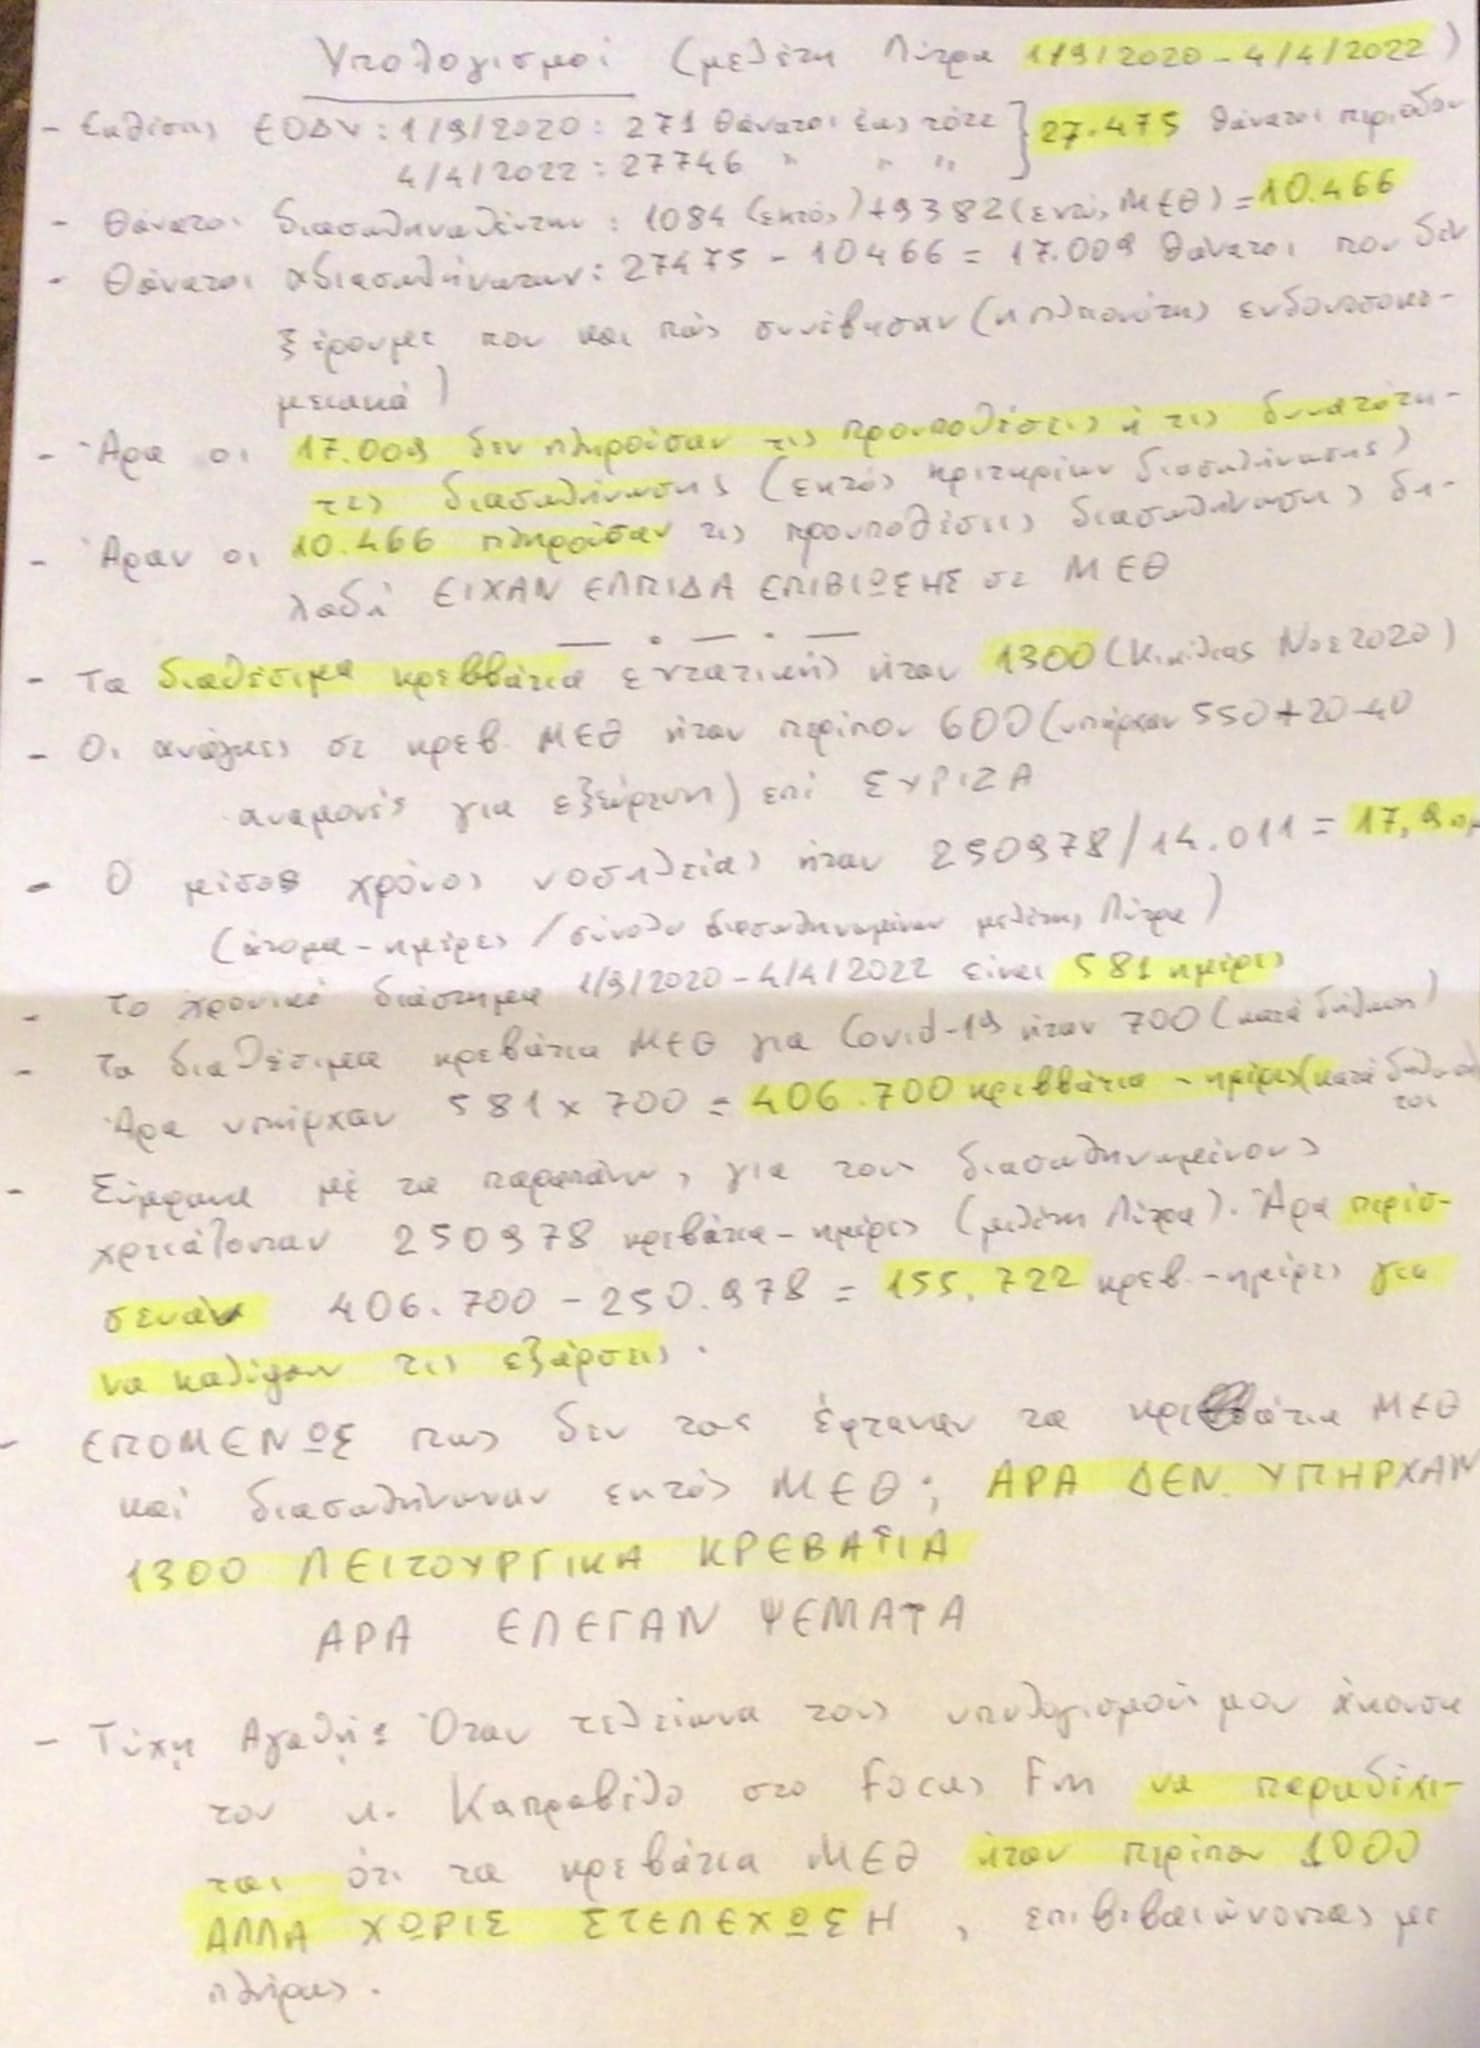 Υπολογισμοί (μελέτη Λύτρα 1/9/2020 - 4/4/2022)
- Εκθέσεις ΕΟΔΥ: 1/9/2020: 271 θάνατοι έως τότε } 27.475 θάνατοι περιόδου
4/4/2022: 27746 " " "
- Θάνατοι διασωληνωθέντων: 1084 (εκτός) + 9382 (εντός ΜΕΘ) = 10.466
- Θάνατοι αδιασωλήνωτων: 27475 - 10466 = 17.009 θάνατοι που δεν
ξέρουμε που και πώς συνέβησαν (η πλειονότης ενδονοσοκο-
μειακά)
- Άρα οι 17.009 δεν πληρούσαν τις προυποθέσεις ή τις δυνατότη-
τες διασωλήνωσης (εκτός κριτηρίων διασωλήνωσης)
- Άραν οι 10.466 πληρούσαν τις προυποθέσεις διασωλήνωσης, δη-
λαδή ΕΙΧΑΝ ΕΛΠΙΔΑ ΕΠΙΒΙΩΣΗΣ σε ΜΕΘ
- Τα διαθέσιμα κρεββάτια εντατικής ήταν 1300 (Κικίλιας Νοε 2020)
- Οι ανάγκες σε κρεβ. ΜΕΘ ήταν περίπου 600 (υπήρχαν 550 + 20-40
αναμονές για εξεύρεση) επί ΣΥΡΙΖΑ
- Ο μέσος χρόνος νοσηλείας ήταν 250978/14.011 = 17,9
(άτομα-ημέρες / σύνολο διασωληνωμένων μελέτης Λύτρα)
- το χρονικό διάστημα 1/9/2020 - 4/4/2022 είναι 581 ημέρες
- Τα διαθέσιμα κρεβάτια ΜΕΘ για Covid-19 ήταν 700 (κατά δήλωση)
Άρα υπήρχαν 581 x 700 = 406.700 κρεββάτια - ημέρες (κατά δήλωσή
του
- Σύμφωνα με τα παραπάνω, για τους διασωληνωμένους
χρειάζονταν 250978 κρεβάτια-ημέρες (μελέτη Λύτρα). Άρα περίσ-
σευαν 406.700 - 250.978 = 155.722 κρεβ.-ημέρες για
να καλύψουν τις εξάρσεις.
- ΕΠΟΜΕΝΩΣ πως δεν τους έφταναν τα κρεβάτια ΜΕΘ
και διασωλήνωναν εκτός ΜΕΘ; ΑΡΑ ΔΕΝ ΥΠΗΡΧΑΝ
1300 ΛΕΙΤΟΥΡΓΙΚΑ ΚΡΕΒΑΤΙΑ
ΑΡΑ ΕΛΕΓΑΝ ΨΕΜΑΤΑ
- Τύχη Αγαθή: Όταν τελείωνα τους υπολογισμούς μου άκουσα
τον κ. Καπραβέλο στο Focus Fm να παραδέχε-
ται ότι τα κρεβάτια ΜΕΘ ήταν περίπου 1000
ΑΛΛΑ ΧΩΡΙΣ ΣΤΕΛΕΧΩΣΗ, επιβεβαιώνοντας με
πλήρως.